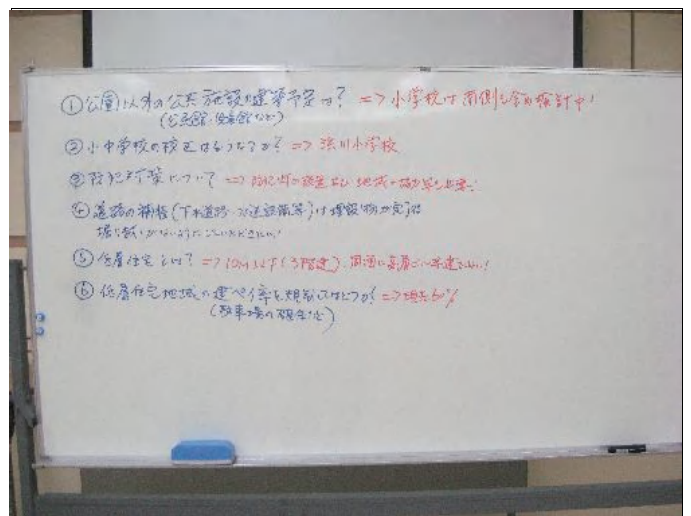 ①公園以外の公共施設の建築予定は？ => 小学校は南側も含め検討中！
(公民館・児童館など)
②小中学校の校区はどうなるか？ => 渋川小学校
③防犯対策について => 防犯灯の設置など 地域の協力等も必要
④道路の補修(下水道・水道設備等)は埋設物が完了後
掘り返しがないようにしていただきたい！
⑤低層住宅とは？ => 10m以下(3階建)、周辺に高層
⑥低層住宅地域の建ぺい率を規制してはどうか？ => 現在60%
(駐車場の確保など)